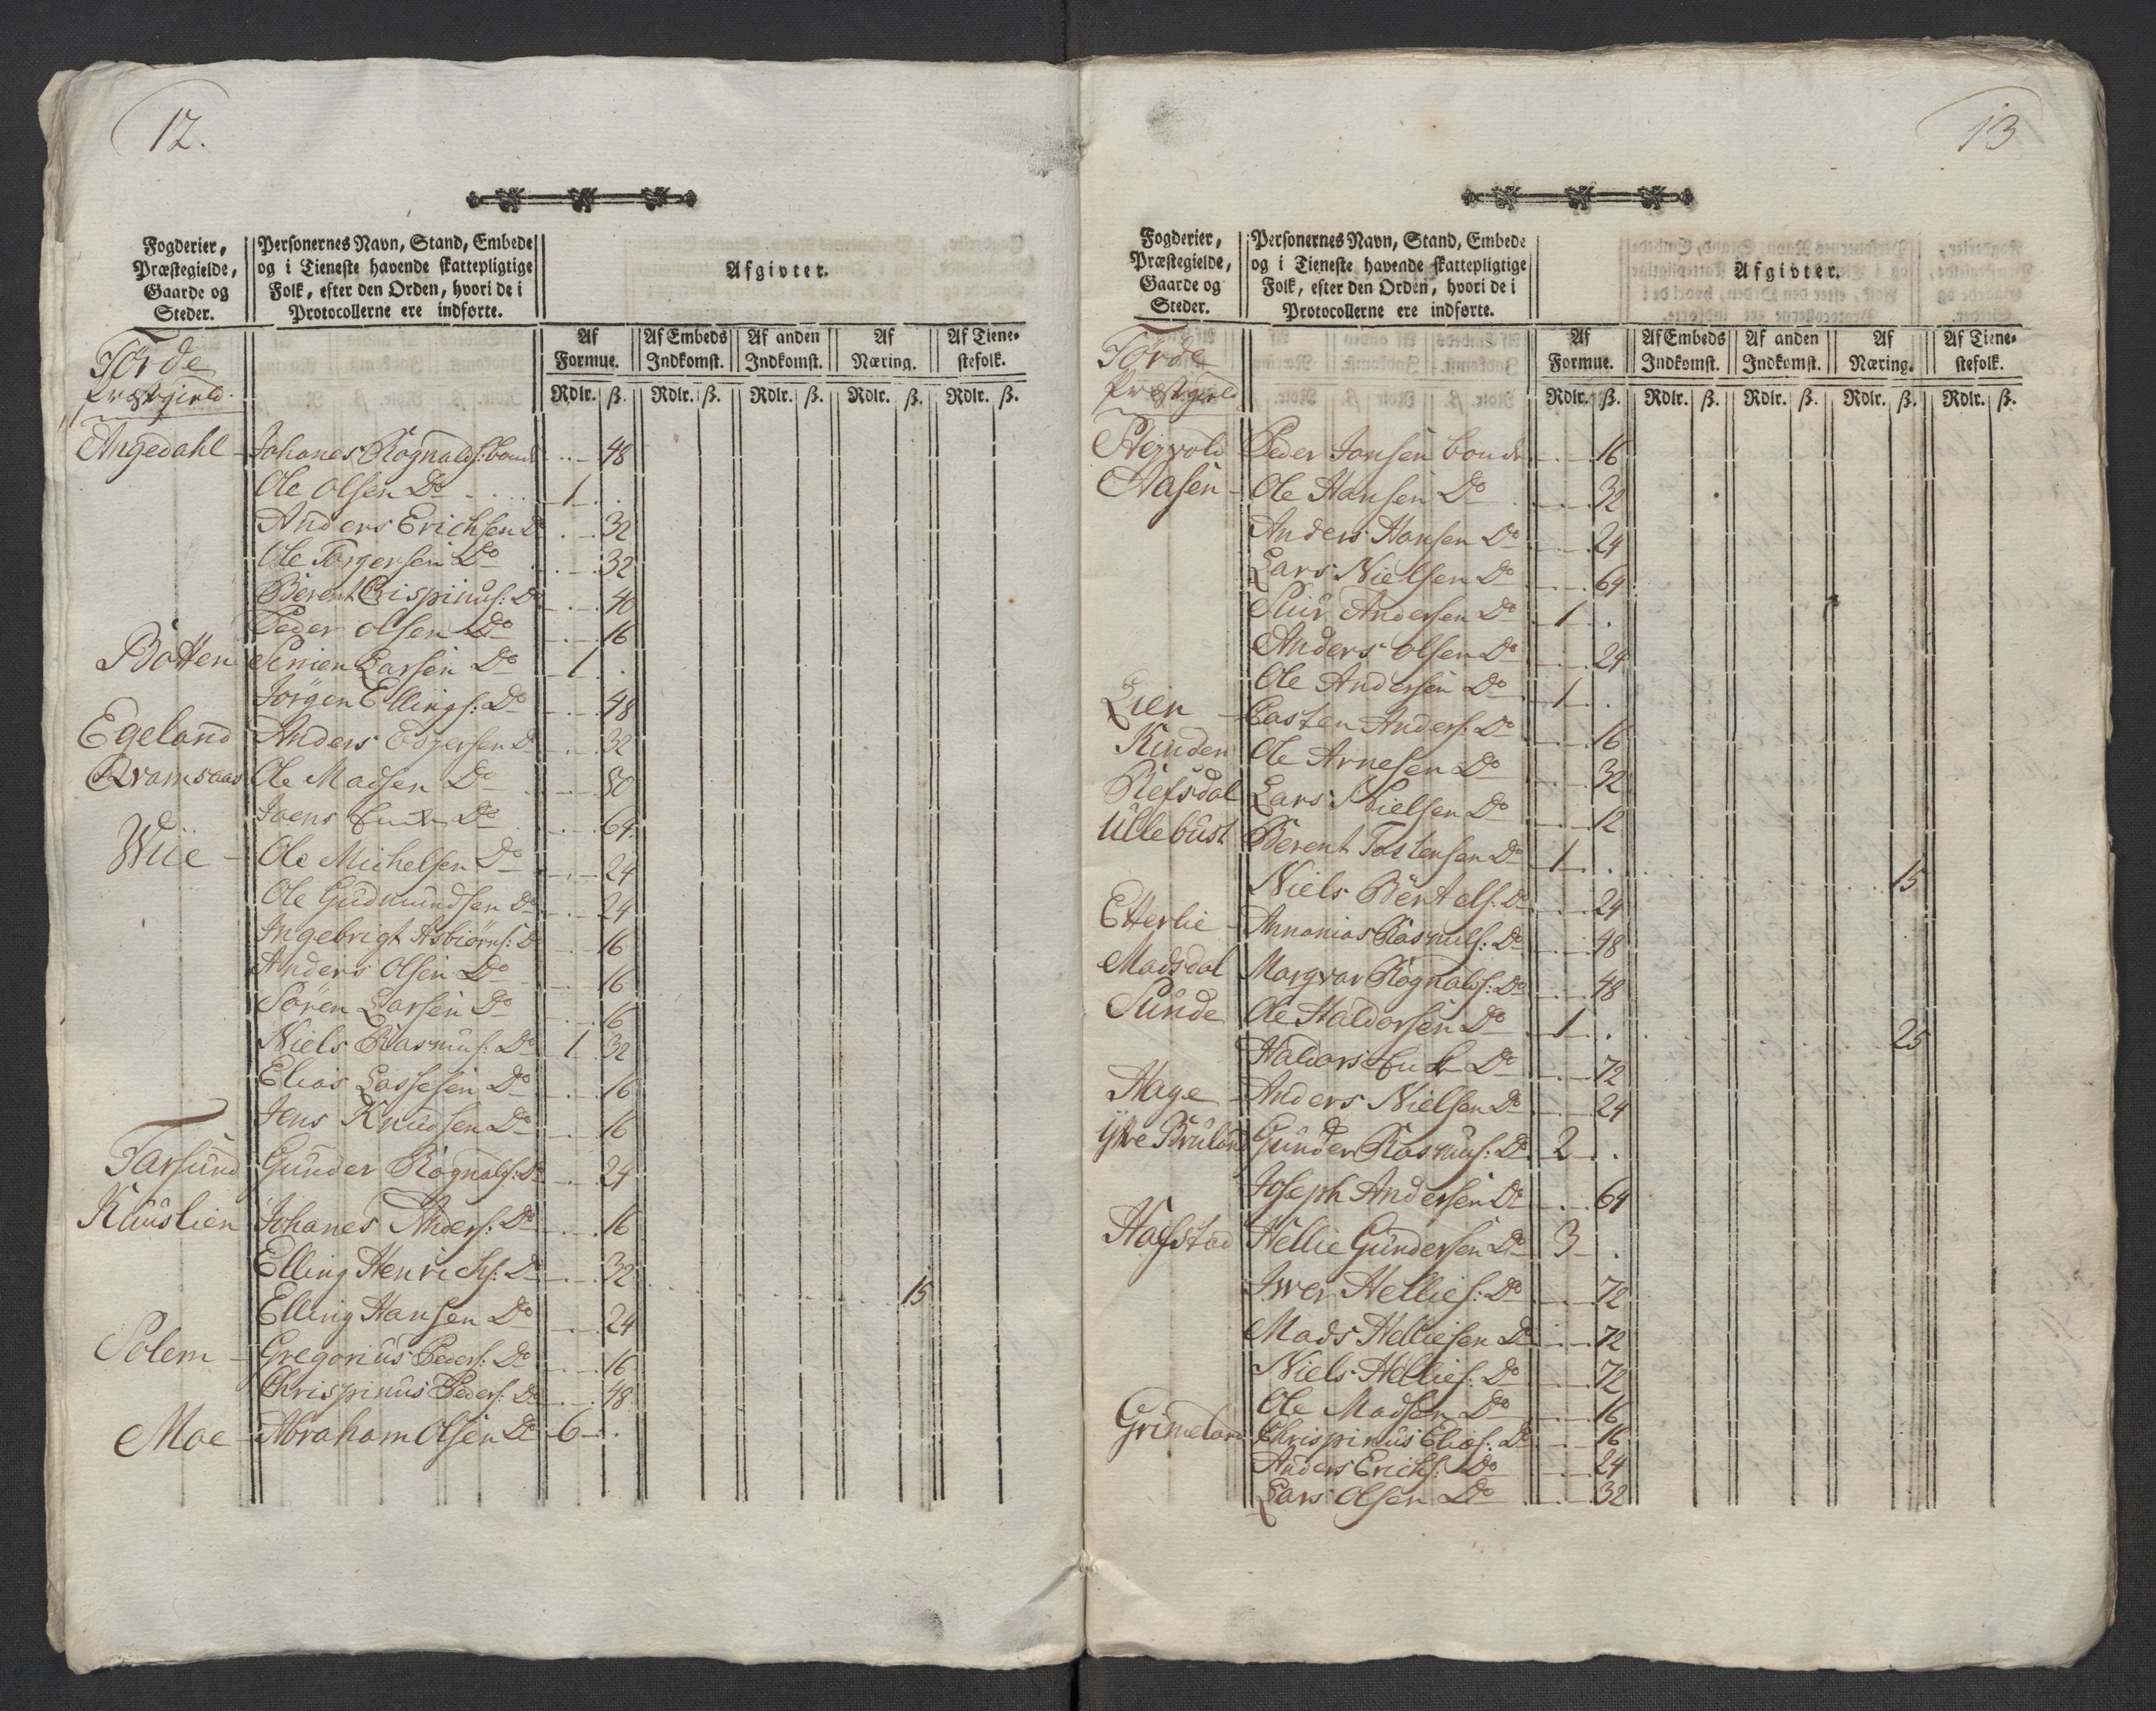 12.
Fogderier, Præstegielde, Gaarde og Steder.
Personernes Navn, Stand, Embede og i Tieneste havende skattepligtige Folk, efter den Orden, hvori de i Protocollerne ere indførte.
Afgivter.
Af Formue. Af Embeds Indkomst. Af anden Indkomst. Af Næring. Af Tienestefolk.
Rdlr. ß. Rdlr. ß. Rdlr. ß. Rdlr. ß. Rdlr. ß.
Førde
Præstgield
Angedahl Johanes Rognalds: bonde 48
Ole Olsen Do 1 .
Anders Erichsen Do 32
Ole Torgersen Do 32
Berent Crispinus: Do 40
Peder Olsen Do 16
Botten Simen Larsen Do 1 .
Jørgen Ellings: Do 48
Egeland Anders Do 32
Qvamsaas Ole Madsen Do 80
Joens Enke Do 64
Wiie Ole Michelsen Do 24
Ole Gudmundsen Do 24
Ingebrigt Asbiørns: Do 16
Anders Olsen Do 16
Søren Larsen Do 16
Niels Rasmus: Do 1 32
Elias Lassesen Do 16
Jens Knudsen Do 16
Farsund Gunder Rognals: Do 24
Kuuslien Johanes Anders: Do 16
Elling Henrichs: Do 32
Elling Hansen Do 24 15
Solem Gregorius Peders: Do 16
Chrispinus Peders: Do 48
Moe Abraham Olsen Do 6 .
13
Fogderier, Præstegielde, Gaarde og Steder.
Personernes Navn, Stand, Embede og i Tieneste havende skattepligtige Folk, efter den Orden, hvori de i Protocollerne ere indførte.
Afgivter.
Af Formue. Af Embeds Indkomst. Af anden Indkomst. Af Næring. Af Tienestefolk.
Rdlr. ß. Rdlr. ß. Rdlr. ß. Rdlr. ß. Rdlr. ß.
Førde
Præstgield
Steyvold Peder Jansen bonde 16
Aasen Ole Hansen Do 32
Anders Hansen Do 24
Lars Nielsen Do 64
Siur Andersen Do 1 .
Anders Olsen Do 24
Ole Andersen Do 1 .
Lien Casten Anders: Do 16
Kinden Ole Arnesen Do 32
Refsdal Lars Nielsen Do 12
Ullebust Berent Tostensen Do 1 .
Niels Bentels: Do 24 15
Etterlie Annanias Rasmus: Do 48
Madsdal Margvar Rognalds: Do 48
Sunde Ole Haldorsen Do 1 .
Haldors Enke Do 72 25
Hage Anders Nielsen Do 24
Ytre Bruland Gunder Rasmus: Do 2 .
Joseph Andersen Do 64
Hafstad Hellie Gundersen Do 3 .
Iver Hellies: Do 72
Mads Helliesen Do 72
Niels Hellies: Do 72
Ole Madsen Do 16
Grimeland Chrispinus Elias: Do 16
Anders Erichs: Do 24
Lars Olsen Do 32